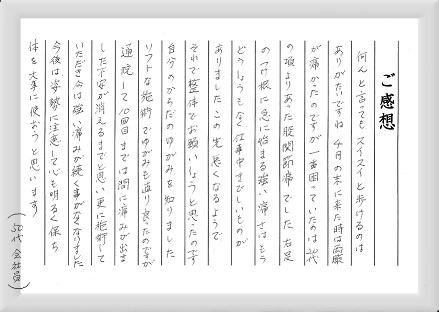 ご感想
何んと言ってもスイスイと歩けるのは
ありがたいですね 4月の末に来た時は両膝
が痛かったのですが一番困っていたのは20代
の頃よりあった股関節痛でした 右足
のつけ根に急に始まる強い痛さはもう
どうしようもなく仕事中さびしいものが
ありました この先悪くなるようで
それで整体でお願いしようと思ったのです
自分のからだのゆがみを知りました
ソフトな施術でゆがみも直り良かったのですが
通院して10回目までは間に痛みが出ま
した 不安が消えるまでと思い更に施術して
いただき今は強い痛みが続く事がなくなりました
今後は姿勢に注意して心も明るく保ち
体を大事に使おうと思います
(50代 会社員)